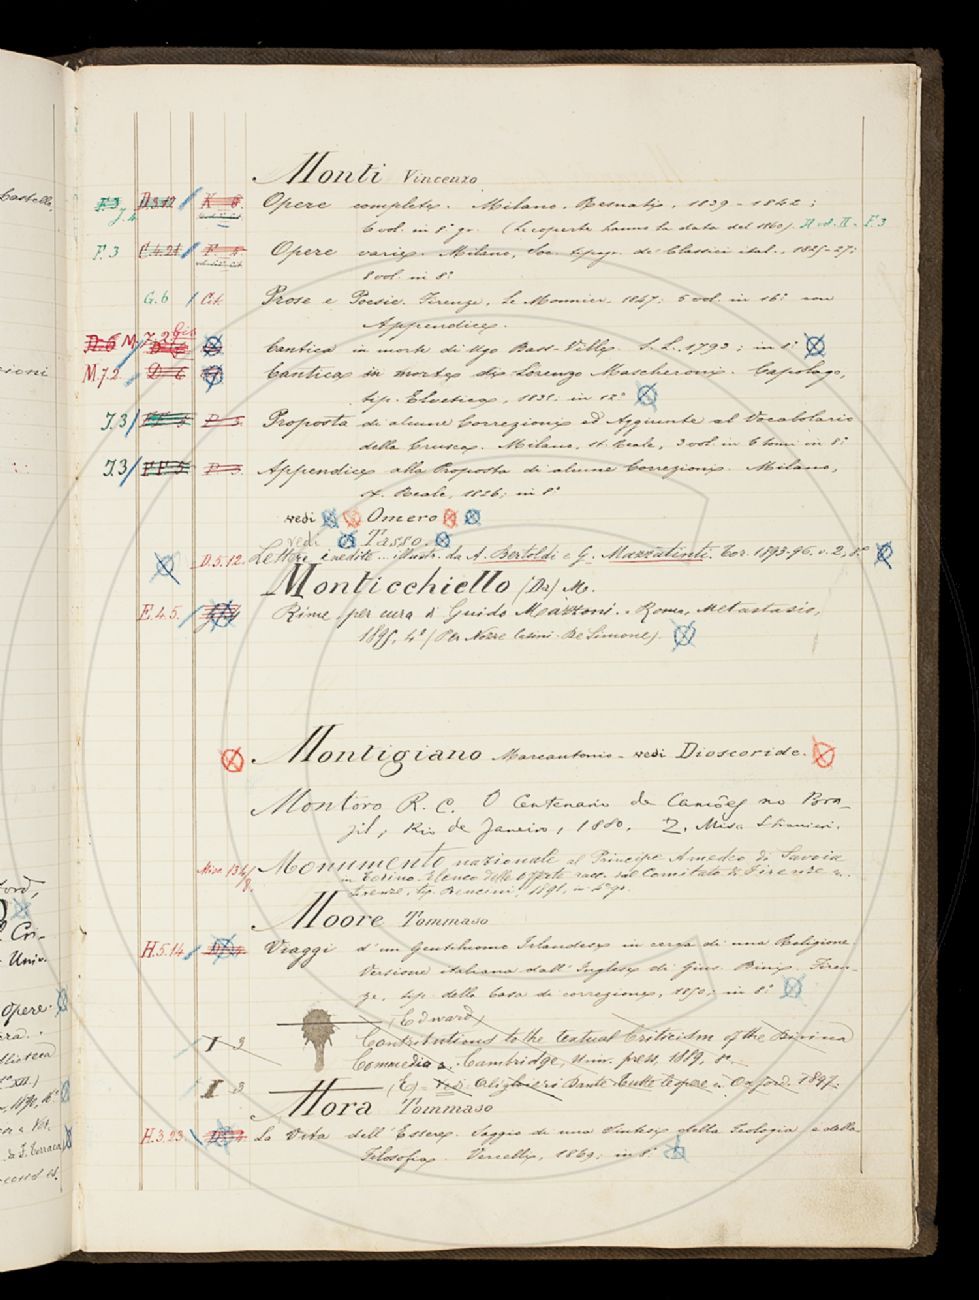 Monti Vincenzo
F.3 J.4 D.3.12 Opere complete. Milano. Resnati, 1839-1842;
6 vol. in 8° gr. (Le coperte hanno la data del 1860)
F.3 C.4.21 Opere varie. Milano, Soc. tipogr. de' Classici ital., 1825-27;
8 vol. in 8°
G.6 Prose e Poesie. Firenze, Le Monnier. 1847; 5 vol. in 16° con
Appendice.
D.6 M.7.2 Cantica in morte di Ugo Bass-Ville. S. L. 1793; in 8°
M 7.2 D 6 Cantica in morte di Lorenzo Mascheroni. Capolago,
tip. Elvetica, 1831. in 12°
J.3 Proposta di alcune Correzioni ed Aggiunte al Vocabolario
della Crusca. Milano, St. Reale, 3 vol. in 6 tomi in 8°
J.3 FF.5 Appendice alla Proposta di alcune Correzioni. Milano,
St. Reale, 1826; in 8°
vedi Omero
vedi Tasso.
D.5.12. Lettere inedite... illustr. da A. Bertoldi e G. Mazzatinti. Tor. 1893-96. v. 2, 8°
Monticchiello (Da) M.
E.4.5. Rime, per cura di Guido Mazzoni. Roma, Metastasio,
1895, 4° (Per Nozze Casini-De Simone).
Montigiano Marcantonio - vedi Dioscoride.
Montoro R. C. O Centenario de Camões no Bra-
zil, Rio de Janeiro, 1880. Z. Misc. Stranieri.
Misc. 134/8. Monumento nazionale al Principe Amedeo di Savoia
in Torino. Elenco delle offerte racc. dal Comitato di Firenze
Firenze, tip. 1891. in 4° gr.
Moore Tommaso
H.5.14 Viaggi d'un Gentiluomo Irlandese in cerca di una Religione.
Versione italiana dall'Inglese di Gius. Bini. Firen-
ze, tip. della Casa di correzione, 1850; in 8°
(Edward)
I 3 Contributions to the textual Criticism of the Divina
Commedia. Cambridge, Univ. press, 1889. 8°
I 3 (E) - Vedi Alighieri Dante Tutte le opere. Oxford. 1897.
Mora Tommaso
H.3.23 La Vita dell'Essere. Saggio di una Sintesi della Teologia e della
Filosofia. Vercelli, 1869; in 8°